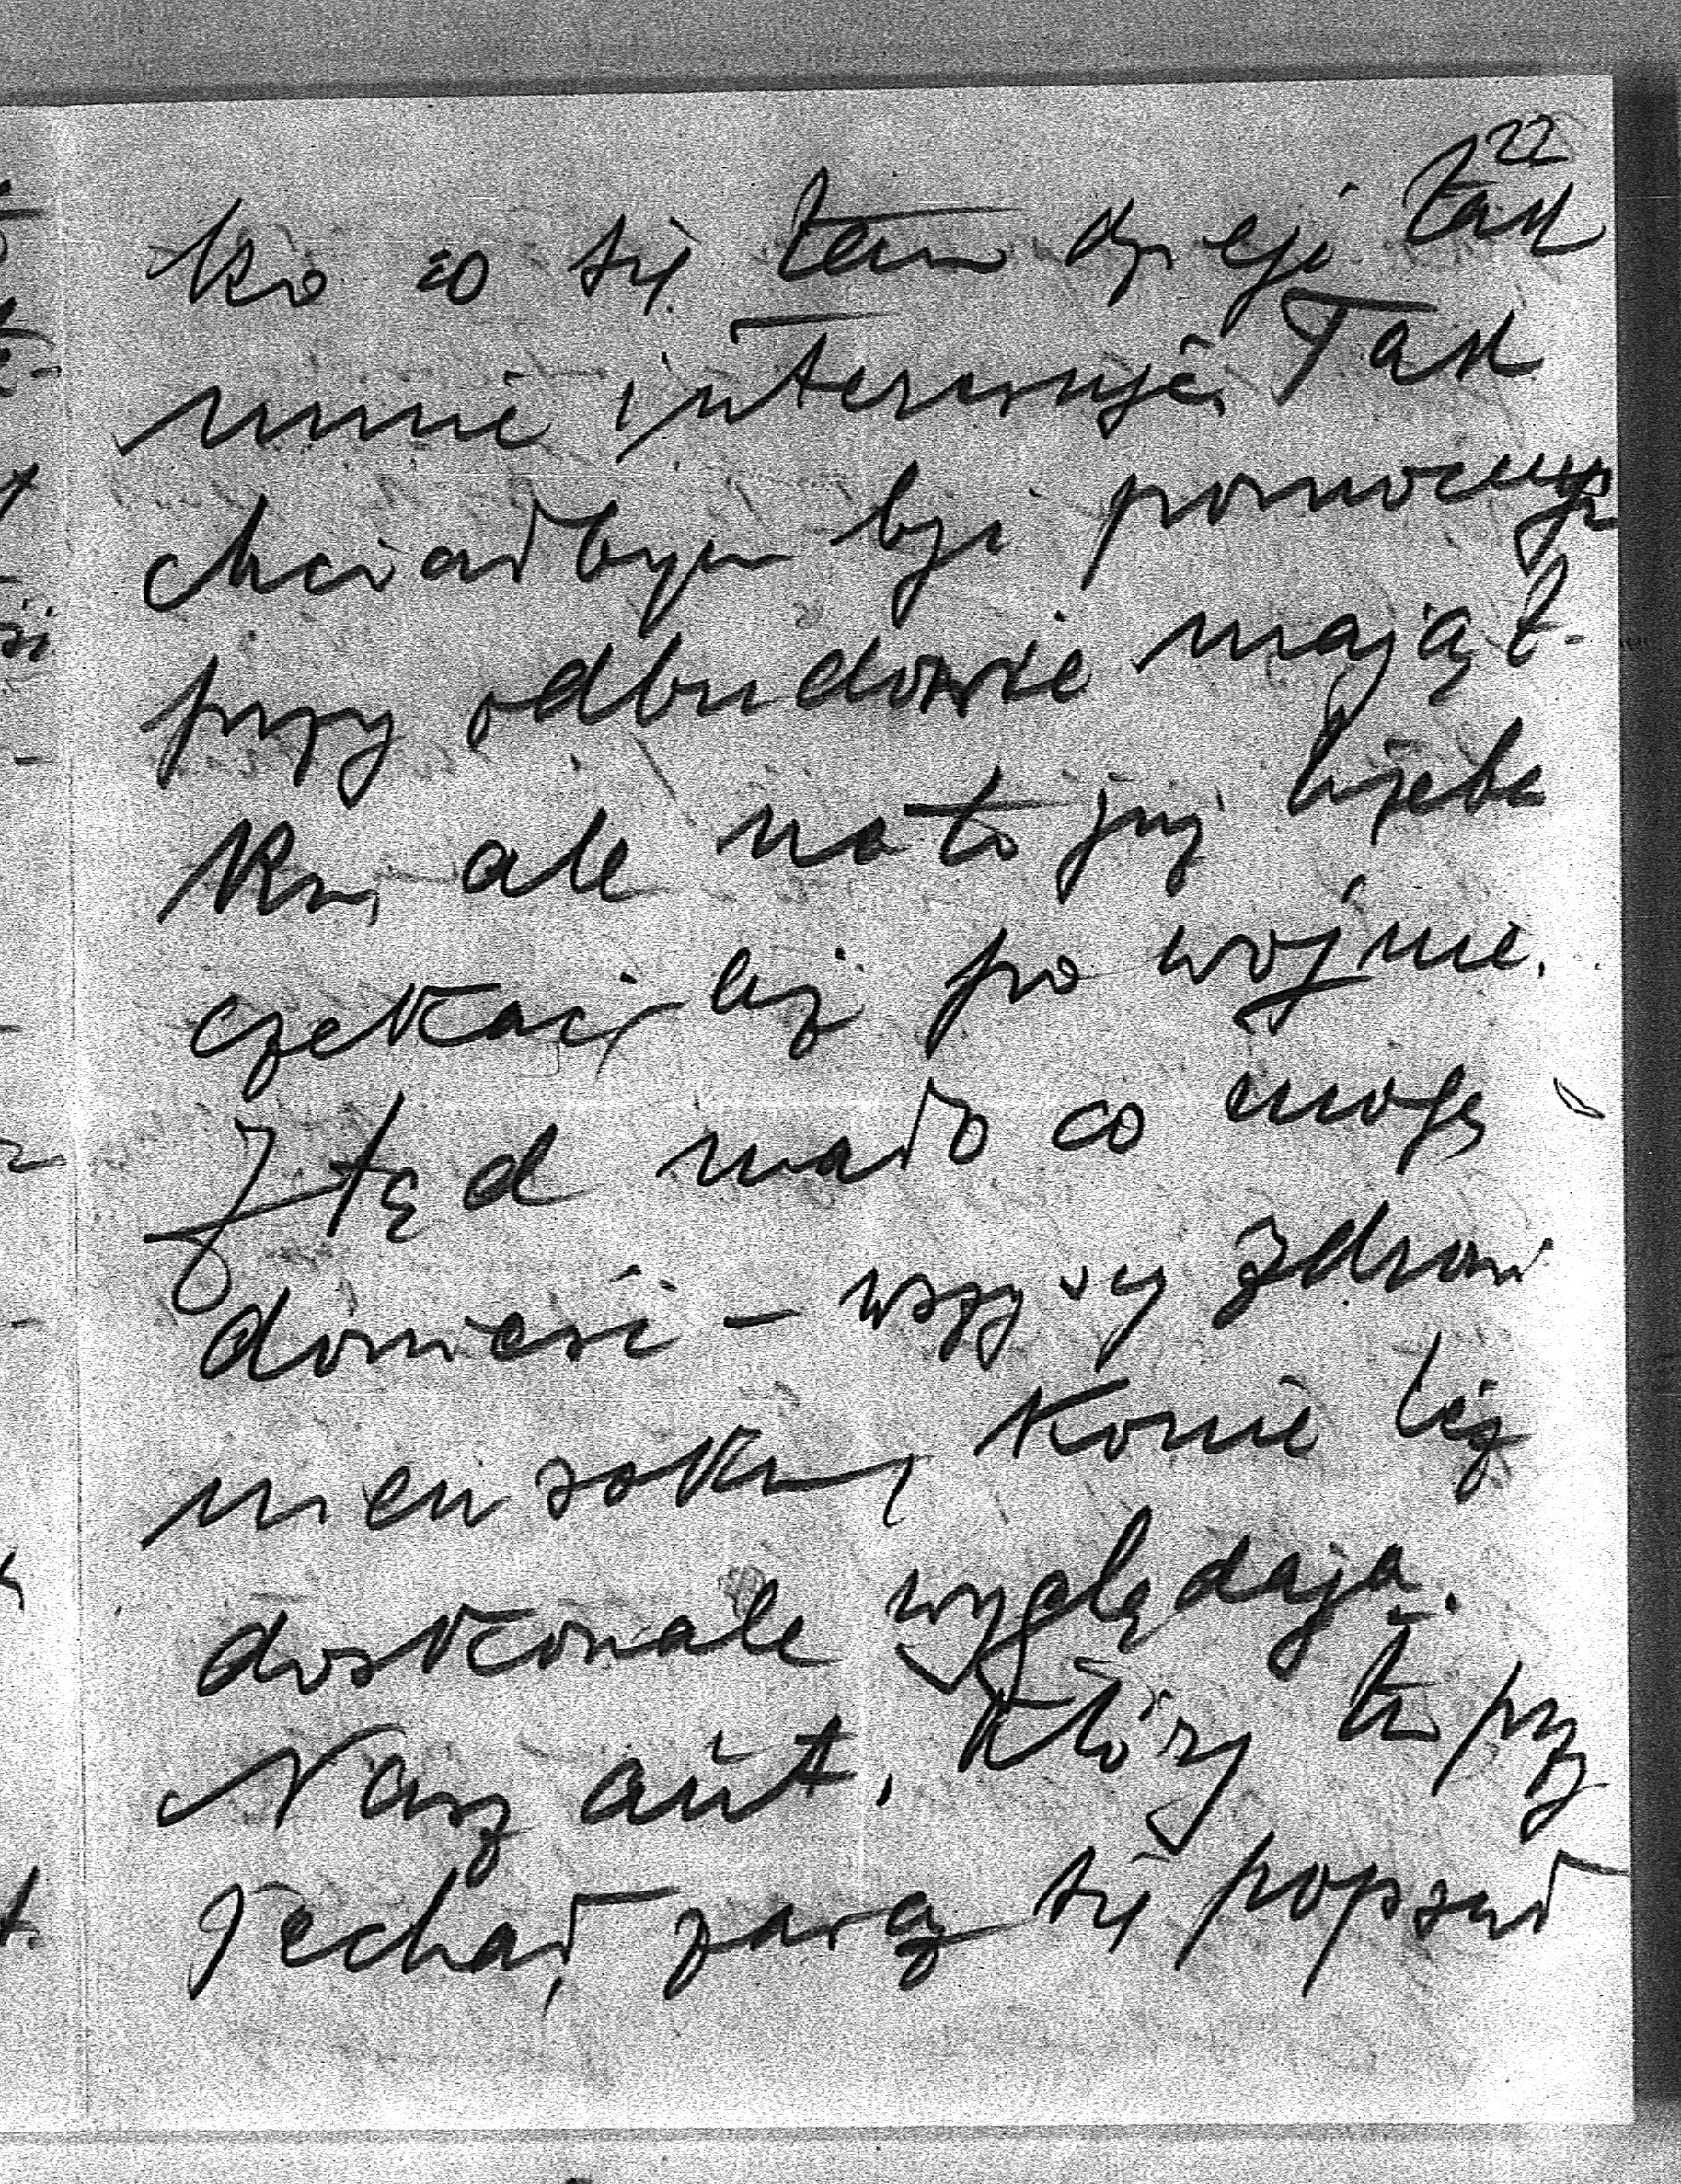 22
ko co się tam dzieje tak
mnie interesuje. Tak
chciałbym być pomocnym
przy odbudowie mająt-
ku, ale na to już trzeba
czekać aż po wojnie.
Ztąd mało co mogę
donieść – wszyscy zdrowi
konie też
doskonale wyglądają.
Nasz aut, który tu przy
jechał, zaraz się popsuł